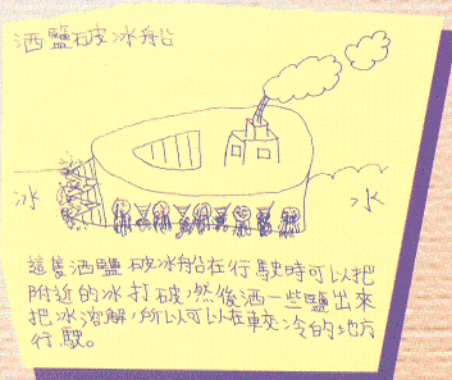 洒鹽破冰船
冰
水
這隻洒鹽破冰船在行駛時可以把
附近的冰打破,然後洒一些鹽出來
把冰溶解,所以可以在較冷的地方
行駛。